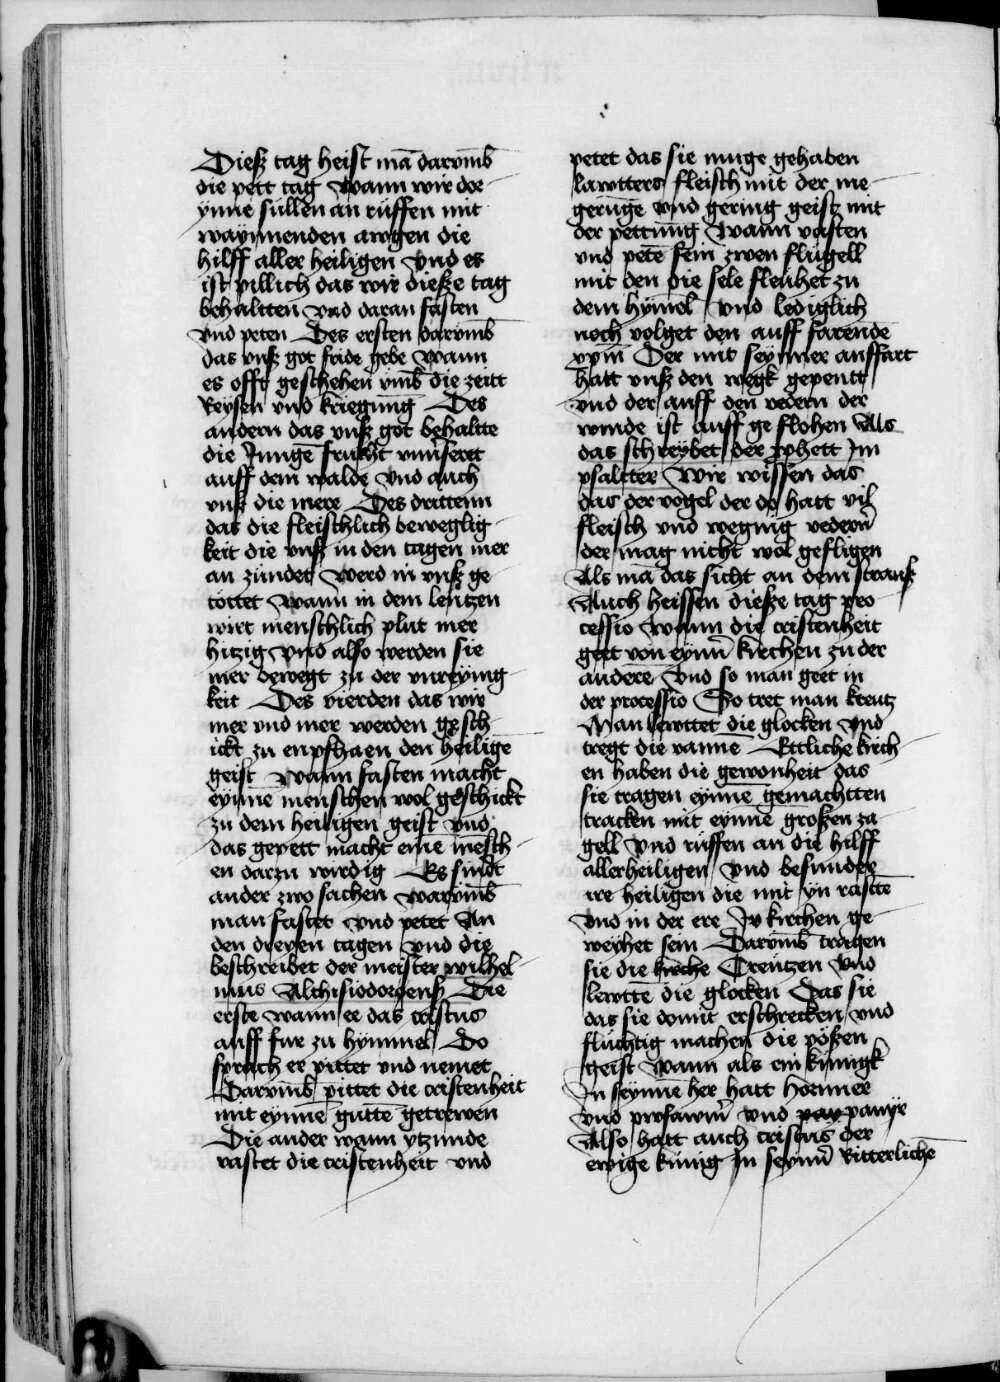 Diesz tag heist mā darvmb
die pett tag wann wir dor
ynne sullen an rüffen mit
waynnenden awgen die
hilff aller heiligen Vnd es
ist pillich das wir diesze tag
behaltten vnd daran fasten
vnd peten Des ersten darvmb
das vnsz got fride gebe wann
es offt geschehen vmb die zeitt
Reysen vnd kriegung Des
andern das vnsz got behaltte
die Junge frucht vnnseret
auff dem walde vnd auch
vnsz die mere Des drittenn
das die fleischlich beweglig
keit die vnsz in den tagen mer
an zundet werd in vnsz ge
töttet wann in dem lentzen
wirt menschlich plut mer
hitzig vnd also werden sie
mer bewegt zu der vnreynig
keit Des vierden das wir
mer vnd mer werden gesch
ickt zu enpfhaen den heiligē
geist wann fasten macht
eynnē menschen wol geschickt
zu dem heiligen geist vnd
das gepett macht eine mēsch
en darzu wirdig Es sindt
ander zwo sachen warvmb
man fastet vnd petet An
den dreyen tagen vnd die
beschreibet der meister wilhel
mus Altisiodorgensz Die
erste wann ee das cristus
auff fur zu hymmel Do
sprach er pittet vnd nemet
Darvmb pittet die cristenheit
mit eynne gutte getrewen
Die ander wann ytzunde
vastet die cristenheit vnd
petet das sie muge gehaben
lawtters fleisch mit der me
gerunge vnd gering geist mit
der pettung wann vasten
vnd petē sein zwen flugell
mit den die sele fleuhet zu
dem hymel vnd lediglich
noch volget den auff farende
xpm̄ Der mit seynner auffart
hatt vnsz den wegk gepentt
vnd der auff den vedern der
winde ist auff ge flohen Als
das schreybet der pphett Im
psaltter Wir wissen das
das der vogel der do hatt vil
fleisch vnd wegnig vedern̄
der mag nicht wol gefligen
Als mā das sicht an dem strausz
Auch heissen diesze tag pro
cessio wann die cristenheit
geet von eynn̄ kirchen zu der
anderē Vnd so man geet in
der processio So tret man kreutz
Man lewttet die glocken vnd
tregt die vanne Ettliche kirch
en haben die gewonheit das
sie tragen eynnē gemachtten
tracken mit eynnē groszen za
gell Vnd rüffen an die hilff
allerheiligen Vnd besunder
ire heiligen die mit yn rastte
vnd in der ere Ir kirchen ge
weyhet sein Darvmb tragen
sie die kirche Creutzen vnd
lewttē die glocken Das sie
das sie domit erschrecken vnd
fluchtig machen die pöszen
geist wann als ein kunigk
In seynnē her hatt hornner
vnd prosawn̄ vnd pay panye
Also hatt auch cristus der
ewige kunig In seynn̄ Ritterlichē